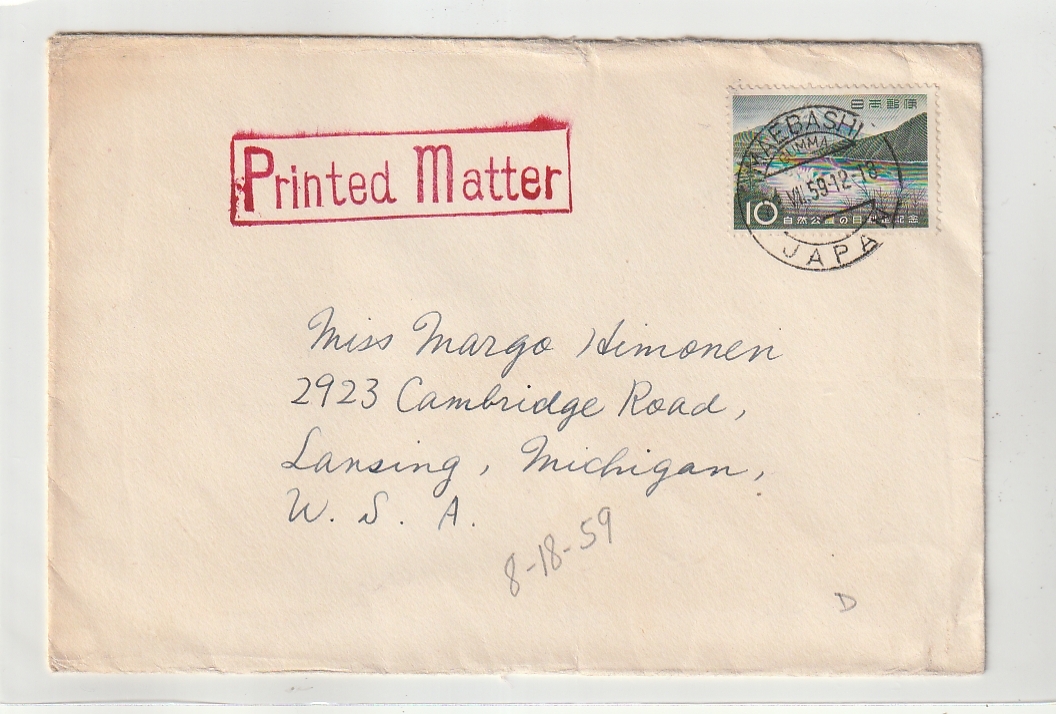 Printed Matter
日本郵便
MAEBASHI
GUMMA
VII.59.12-18
JAPAN
10 自然公園の日制定記念
Miss Margo Himonen
2923 Cambridge Road,
Lansing, Michigan,
U. S. A.
8-18-59
D